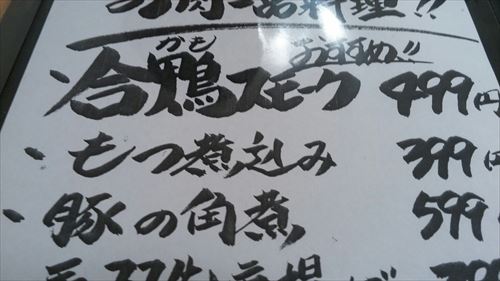 お肉一品料理!!
かも おすすめ!!
・合鴨スモーク 499円
・もつ煮込み 399円
・豚の角煮 599